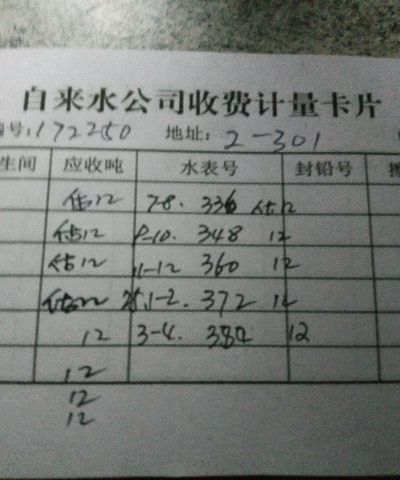 自来水公司收费计量卡片
编号:172250 地址: 2-301
生间 应收吨 水表号 封铅号
估12 7-8. 336 估12
估12 9-10. 348 12
估12 11-12 360 12
1-2. 372 12
12 3-4. 384 12
12
12
12